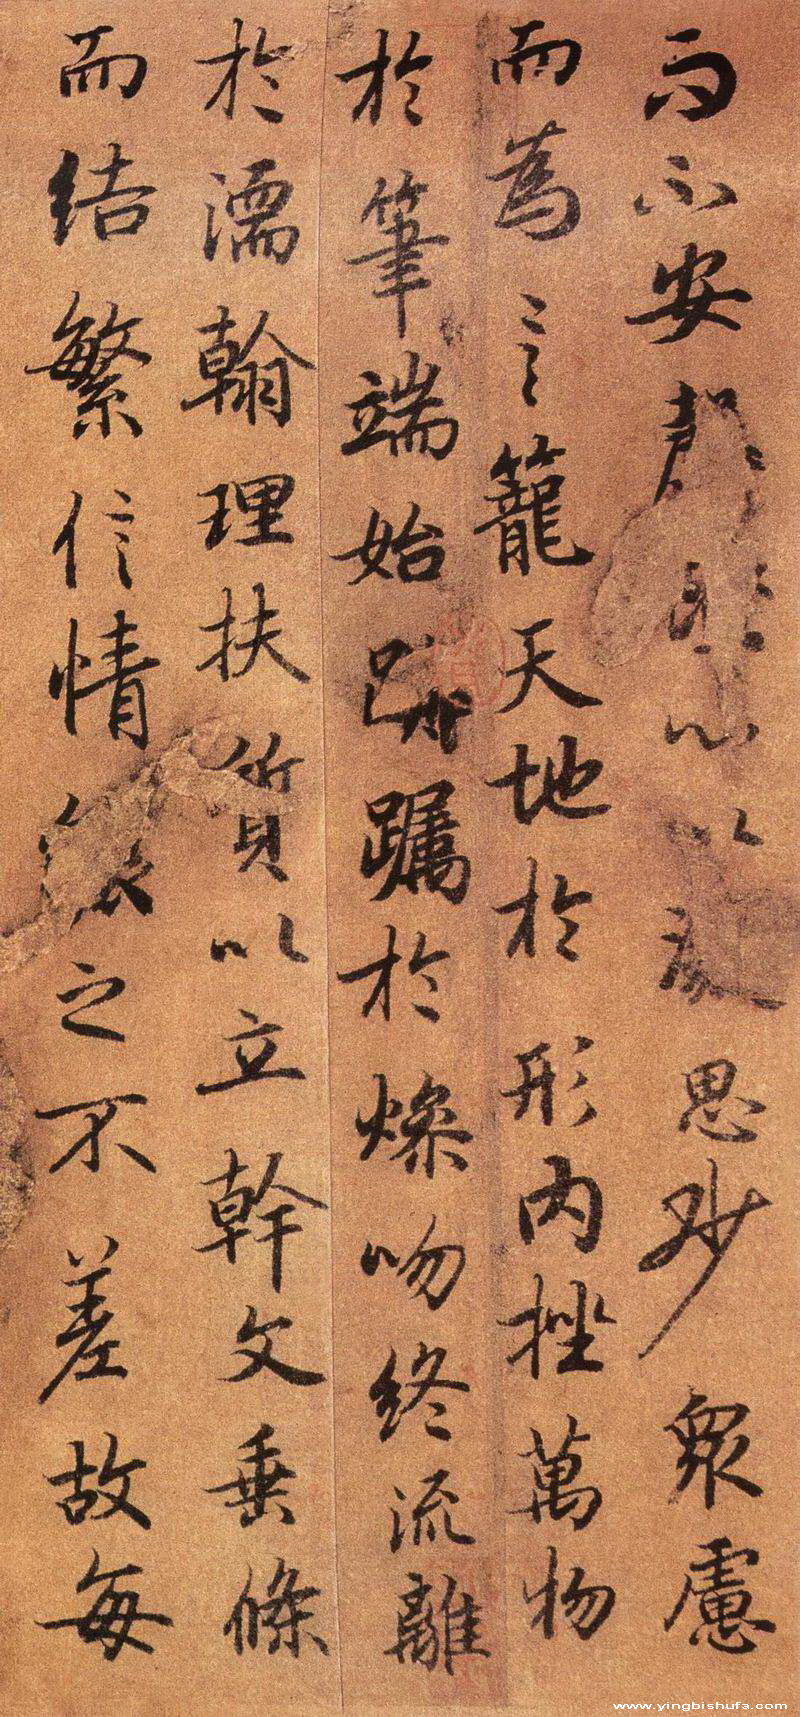 而不安罄心以思眇眾慮
而為言籠天地於形內挫萬物
於筆端始躑躅於燥吻終流離
於濡翰理扶質以立幹文垂條
而結繁信情之不差故每
www.yingbishufa.com